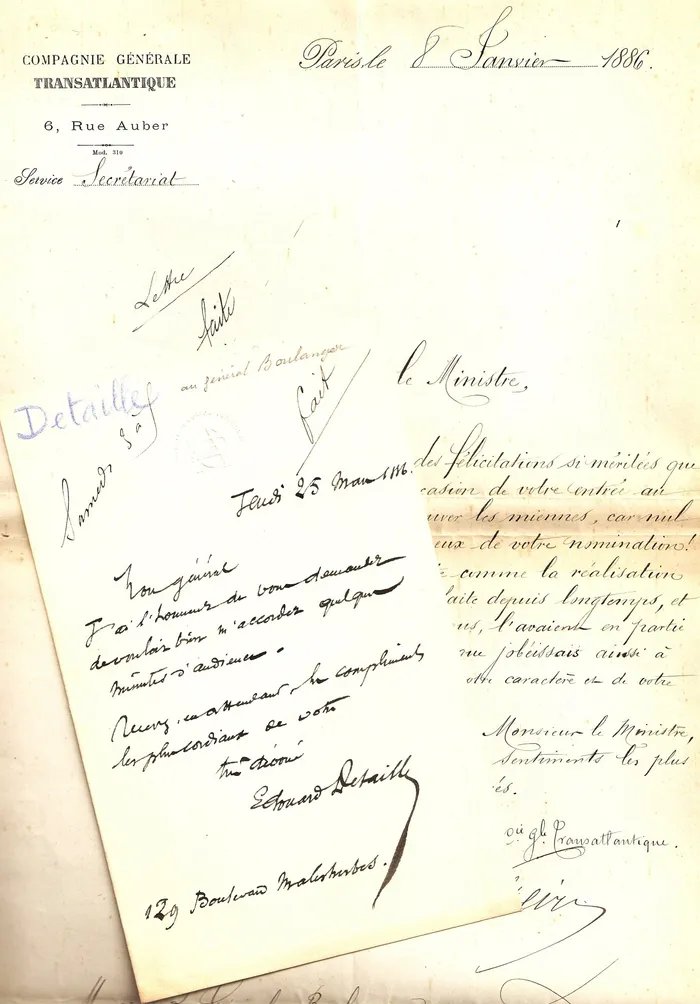 COMPAGNIE GÉNÉRALE
TRANSATLANTIQUE
6, Rue Auber
Mod. 310
Service Secrétariat
Paris, le 8 Janvier 1886.
le Ministre,
des félicitations si méritées que
casion de votre entrée au
uver les miennes, car nul
eux de votre nomination!
comme la réalisation
faite depuis longtemps, et
us, l'avaient en partie
rue j'obéissais ainsi à
otre caractère et de votre
Monsieur le Ministre,
sentiments les plus
és.
Gle Transatlantique.
Lettre
faite
au général Boulanger
fait
Detaille
Samedi
Jeudi 25 Mars 1886.
Mon général
J'ai l'honneur de vous demander
de vouloir bien m'accorder quelques
minutes d'audience.
Recevez, en attendant, les compliments
les plus cordiaux de votre
très dévoué
Edouard Detaille
129 Boulevard Malesherbes.